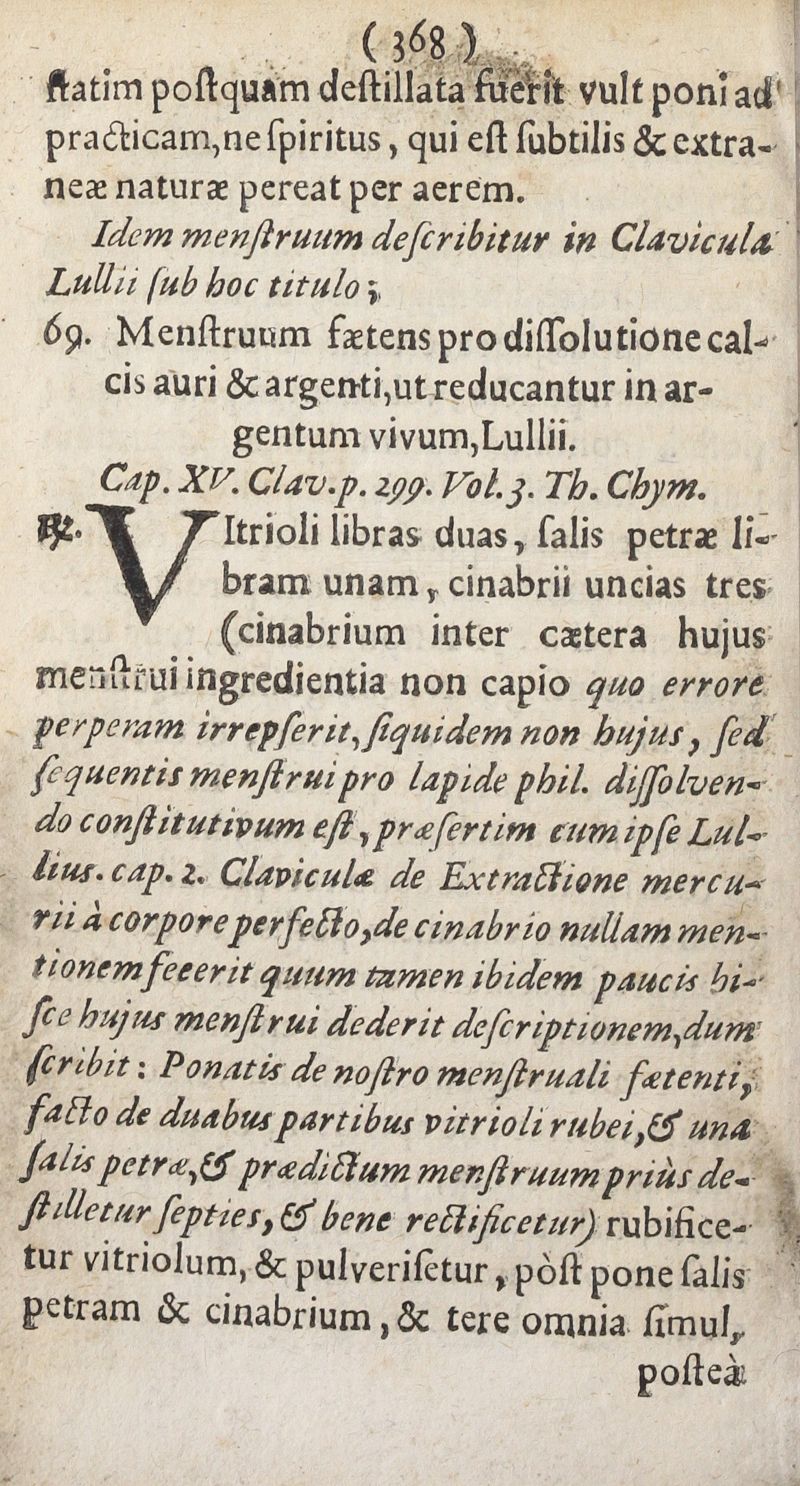 ( 368 )
ſtatim poſtquam deſtillata fuerit vult poni ad
practicam, ne ſpiritus, qui eſt ſubtilis & extra-
neæ naturæ pereat per aerem.
Idem menſtruum deſcribitur in Clavicula
Lullii ſub hoc titulo;
69. Menſtruum fætens pro diſſolutione cal-
cis auri & argenti, ut reducantur in ar-
gentum vivum, Lullii.
Cap. XV. Clav. p. 299. Vol. 3. Th. Chym.
℞. VItrioli libras duas, ſalis petræ li-
bram unam, cinabrii uncias tres
(cinabrium inter cætera hujus
menſtrui ingredientia non capio quo errore
perperam irrepſerit, ſiquidem non hujus, ſed
ſequentis menſtrui pro lapide phil. diſſolven-
do conſtitutivum eſt, præſertim cum ipſe Lul-
lius. cap. 2. Claviculæ de Extractione mercu-
rii à corpore perfecto, de cinabrio nullam men-
tionem feeerit quum tamen ibidem paucis hi-
ſce hujus menſtrui dederit deſcriptionem, dum
ſcribit: Ponatis de noſtro menſtruali fætenti,
facto de duabus partibus vitrioli rubei, & una
ſalis petræ, & prædictum menſtruum priùs de-
ſtilletur ſepties, & bene rectificetur) rubifice-
tur vitriolum, & pulveriſetur, pòſt pone ſalis
petram & cinabrium, & tere omnia ſimul,
poſteà